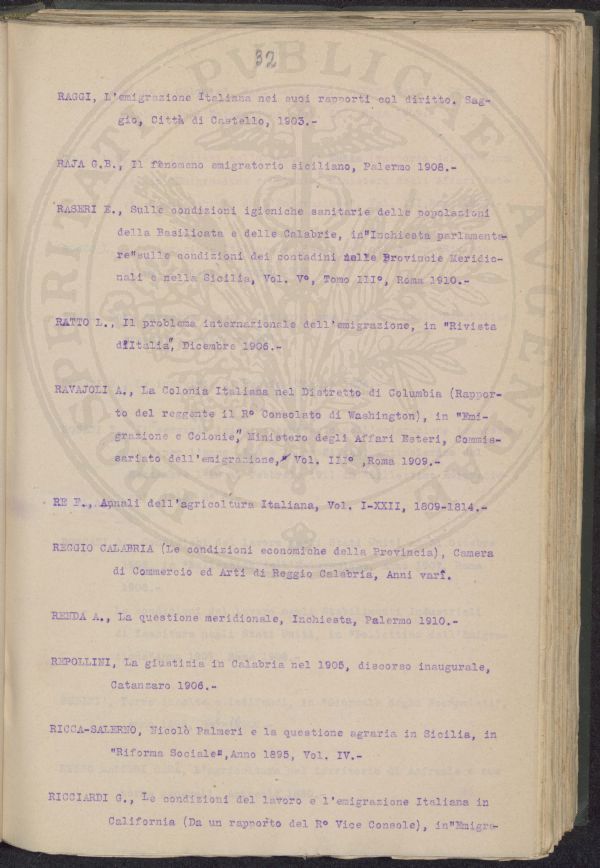 32
RAGGI, L'emigrazione Italiana nei suoi rapporti col diritto. Sag-
gio, Città di Castello, 1903.-
RAJA G.B., Il fenomeno emigratorio siciliano, Palermo 1908.-
RASERI E., Sulle condizioni igieniche sanitarie delle popolazioni
della Basilicata e delle Calabrie, in"Inchiesta parlamenta-
re"sulle condizioni dei contadini nelle Provincie Meridio-
nali e nella Sicilia, Vol. V°, Tomo III°, Roma 1910.-
RATTO L., Il problema internazionale dell'emigrazione, in "Rivista
d'Italia", Dicembre 1906.-
RAVAJOLI A., La Colonia Italiana nel Distretto di Columbia (Rappor-
to del reggente il R° Consolato di Washington), in "Emi-
grazione e Colonie", Ministero degli Affari Esteri, Commis-
sariato dell'emigrazione, Vol. III° ,Roma 1909.-
RE F., Annali dell'agricoltura Italiana, Vol. I-XXII, 1809-1814.-
REGGIO CALABRIA (Le condizioni economiche della Provincia), Camera
di Commercio ed Arti di Reggio Calabria, Anni varî.
RENDA A., La questione meridionale, Inchiesta, Palermo 1910.-
REPOLLINI, La giustizia in Calabria nel 1905, discorso inaugurale,
Catanzaro 1906.-
RICCA-SALERNO, Nicolò Palmeri e la questione agraria in Sicilia, in
"Riforma Sociale",Anno 1895, Vol. IV.-
RICCIARDI G., Le condizioni del lavoro e l'emigrazione Italiana in
California (Da un rapporto del R° Vice Console), in"Emigra-
PROSPERITATI PVBLICAE AVVENDAE